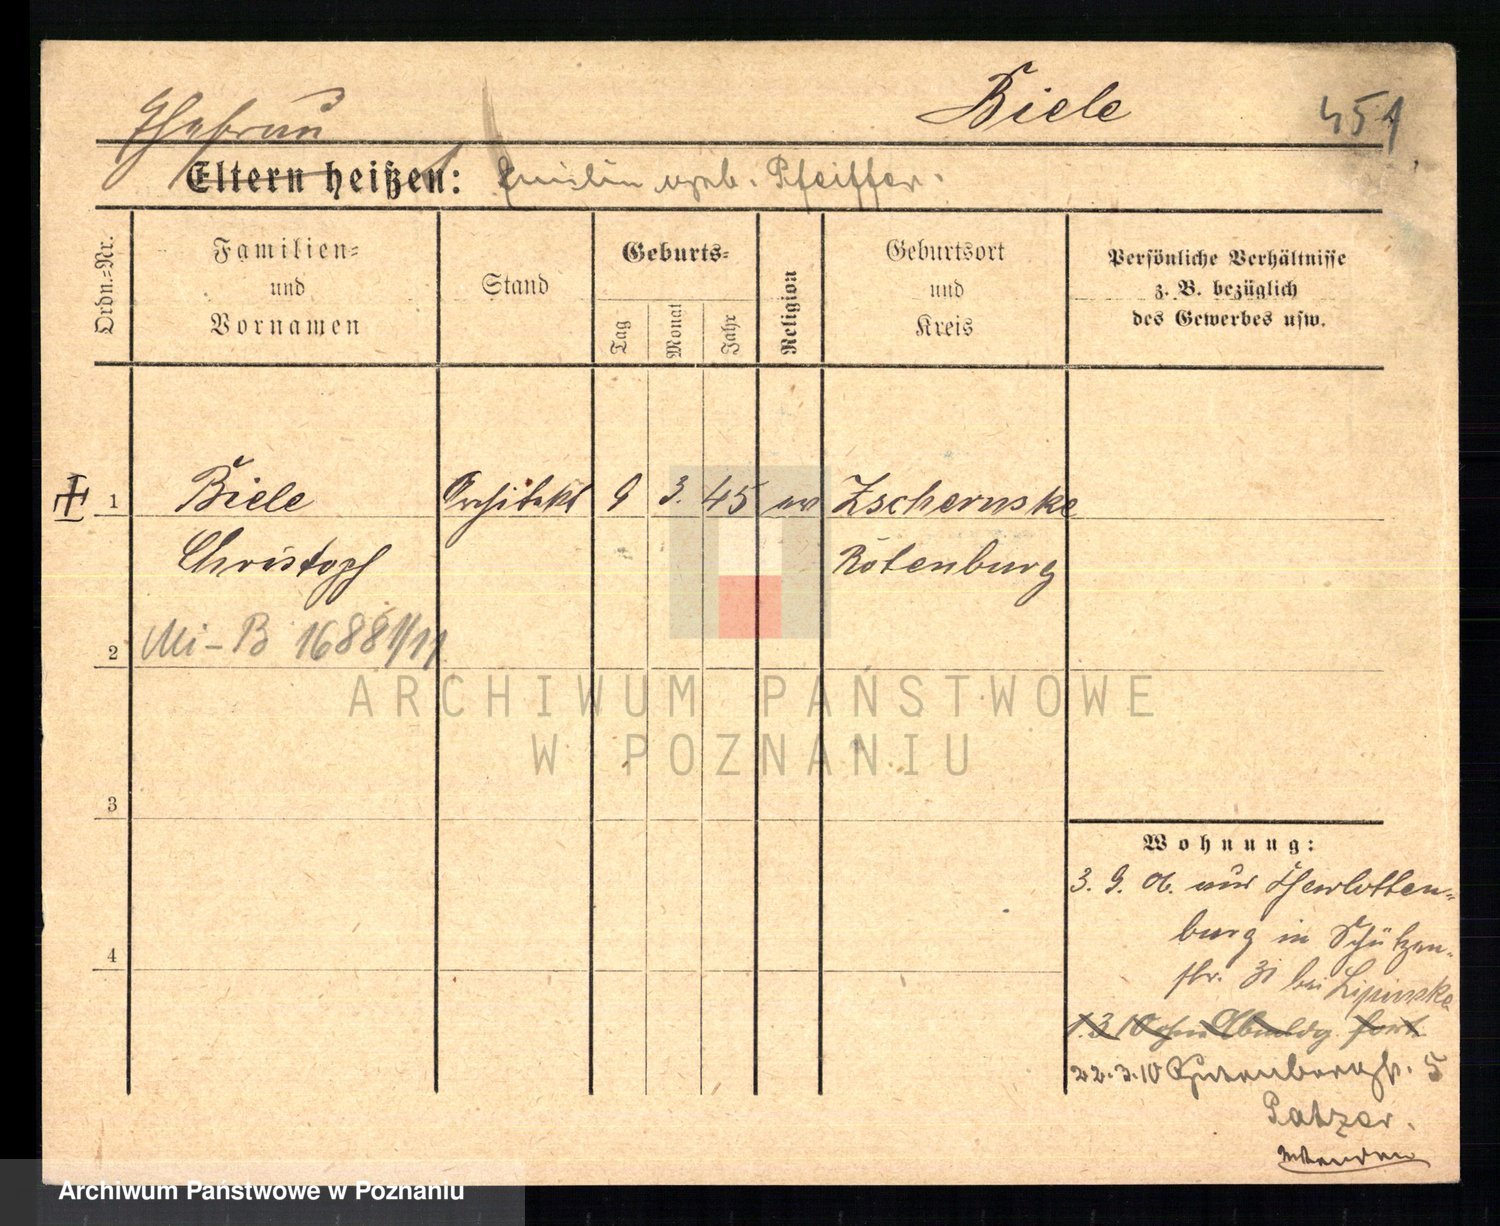 Biele
451
Ehefrau
Eltern heißen: geb. Pfeiffer.
Ordn.=Nr.
Familien=
und
Vornamen
Stand
Geburts=
Tag
Monat
Jahr
Religion
Geburtsort
und
Kreis
Persönliche Verhältnisse
z. B. bezüglich
des Gewerbes usw.
1 Biele Architekt 9 3. 45 ev Zschernske
Christoph Rotenburg
Mi-B 16881/11
2
3
4
Wohnung:
3. 9. 06. aus Charlotten=
burg in Schützen=
str. 31 bei Lipinska
1.3 10 ohne Abmldg. fort
22.3.10 5
Patzer.
ARCHIWUM PAŃSTWOWE
W POZNANIU
Archiwum Państwowe w Poznaniu